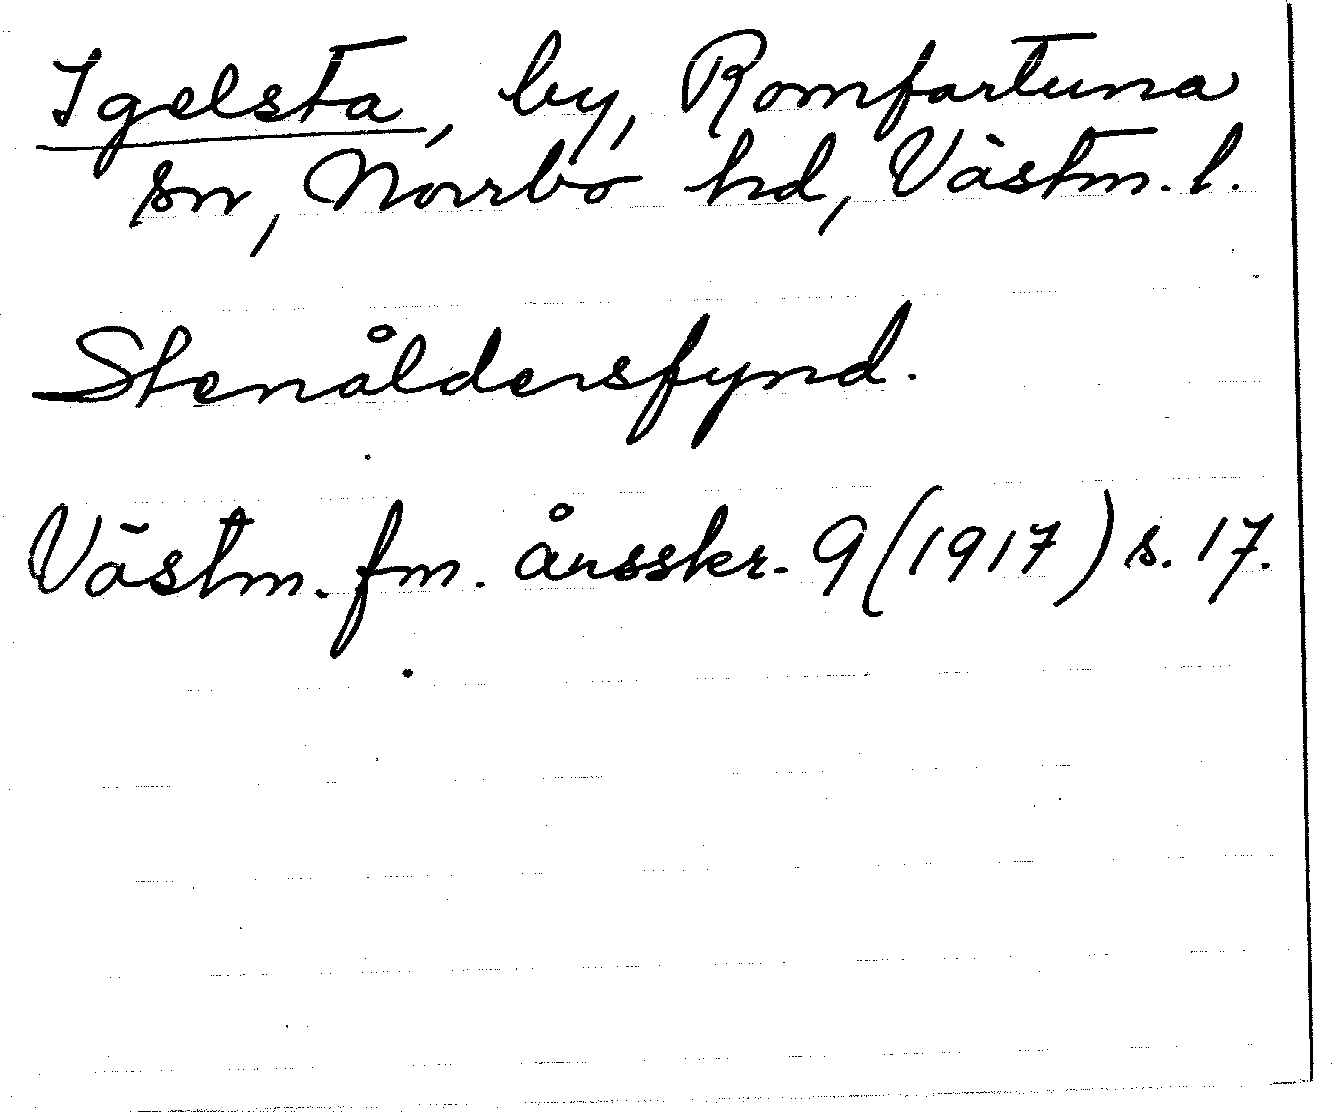 Igelsta, by, Romfartuna
sn, Norrbo hd, Västm. l.
Stenåldersfynd.
Västm. fm. årsskr. 9 (1917) s. 17.